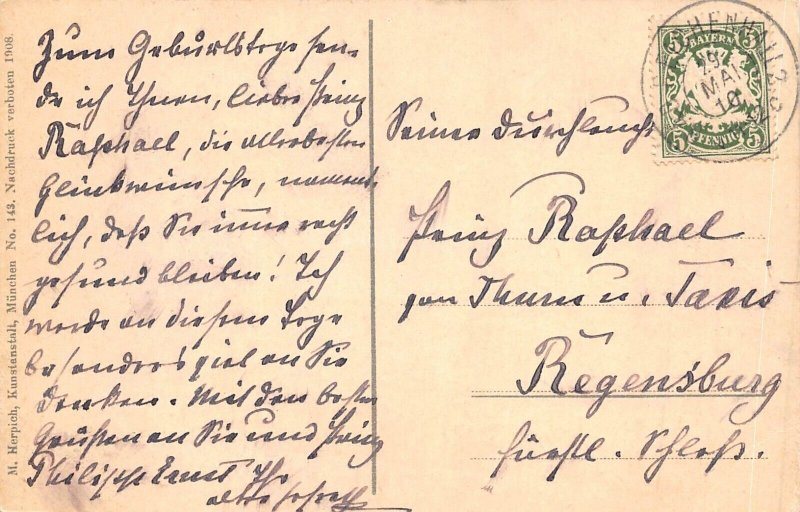 Zum Geburtstage sen-
de ich Ihnen, lieber Prinz
Raphael, die allerbesten
Glückwünsche, nament-
lich, daß Sie immer recht
gesund bleiben! Ich
werde an diesem Tage
besonders viel an Sie
denken. Mit den besten
Grüßen an Sie und Prinz
Philipp Ernst Ihr
alter
Seiner Durchlaucht
Prinz Raphael
von Thurn u. Taxis
Regensburg
fürstl. Schloß.
M. Herpich, Kunstanstalt, München No. 143. Nachdruck verboten 1908.
5 5
BAYERN
5 PFENNIG 5
29
MAI
10